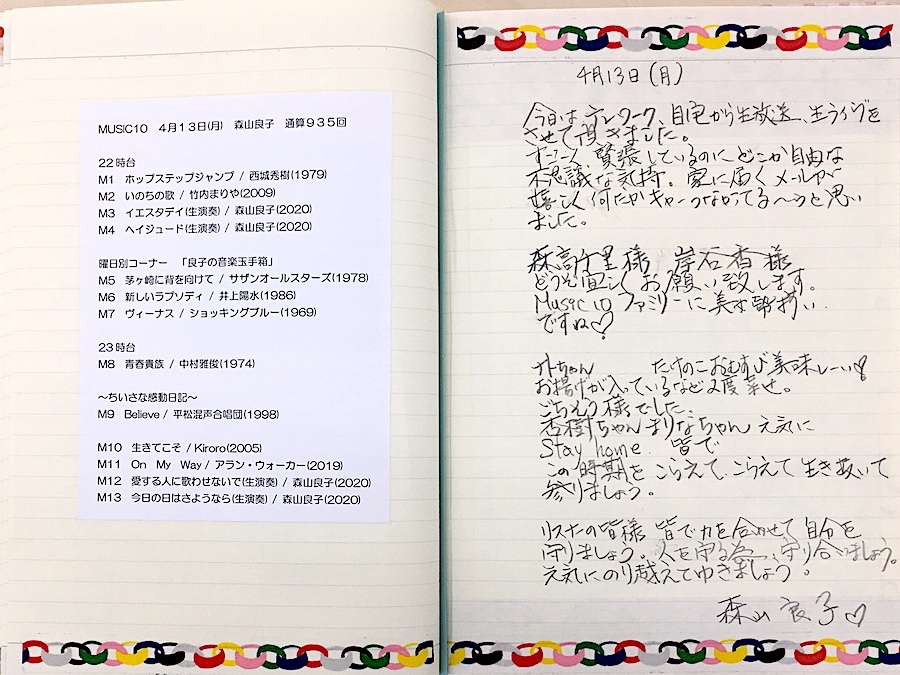 MUSIC10 4月13日(月) 森山良子 通算935回
22時台
M1 ホップステップジャンプ / 西城秀樹(1979)
M2 いのちの歌 / 竹内まりや(2009)
M3 イエスタデイ(生演奏) / 森山良子(2020)
M4 ヘイジュード(生演奏) / 森山良子(2020)
曜日別コーナー 「良子の音楽玉手箱」
M5 茅ヶ崎に背を向けて / サザンオールスターズ(1978)
M6 新しいラプソディ / 井上陽水(1986)
M7 ヴィーナス / ショッキングブルー(1969)
23時台
M8 青春貴族 / 中村雅俊(1974)
～ちいさな感動日記～
M9 Believe / 平松混声合唱団(1998)
M10 生きてこそ / Kiroro(2005)
M11 On My Way / アラン・ウォーカー(2019)
M12 愛する人に歌わせないで(生演奏) / 森山良子(2020)
M13 今日の日はさようなら(生演奏) / 森山良子(2020)
4月13日(月)
今日はテレワーク、自宅から生放送、生ライブを
させて頂きました。
緊張しているのにどこか自由な
不思議な気持。家に届くメールが
嬉しく何だかキャーつながってる〜っと思い
ました。
森高千里様 岸谷香様
どうぞ宜しくお願い致します。
Music 10 ファミリーに美女勢揃い
ですね♡
ナトちゃん たけのこおむすび美味しーい
お揚げが入っているなど2度幸せ。
ごちそう様でした。
杏樹ちゃん まりなちゃん 元気に
Stay home 皆で
この時期をこらえて、こらえて生き抜いて
参りましょう。
リスナーの皆様 皆で力を合わせて自分を
守りましょう。人を守る為、守り合いましょう。
元気にのり越えてゆきましょう。
森山良子♡